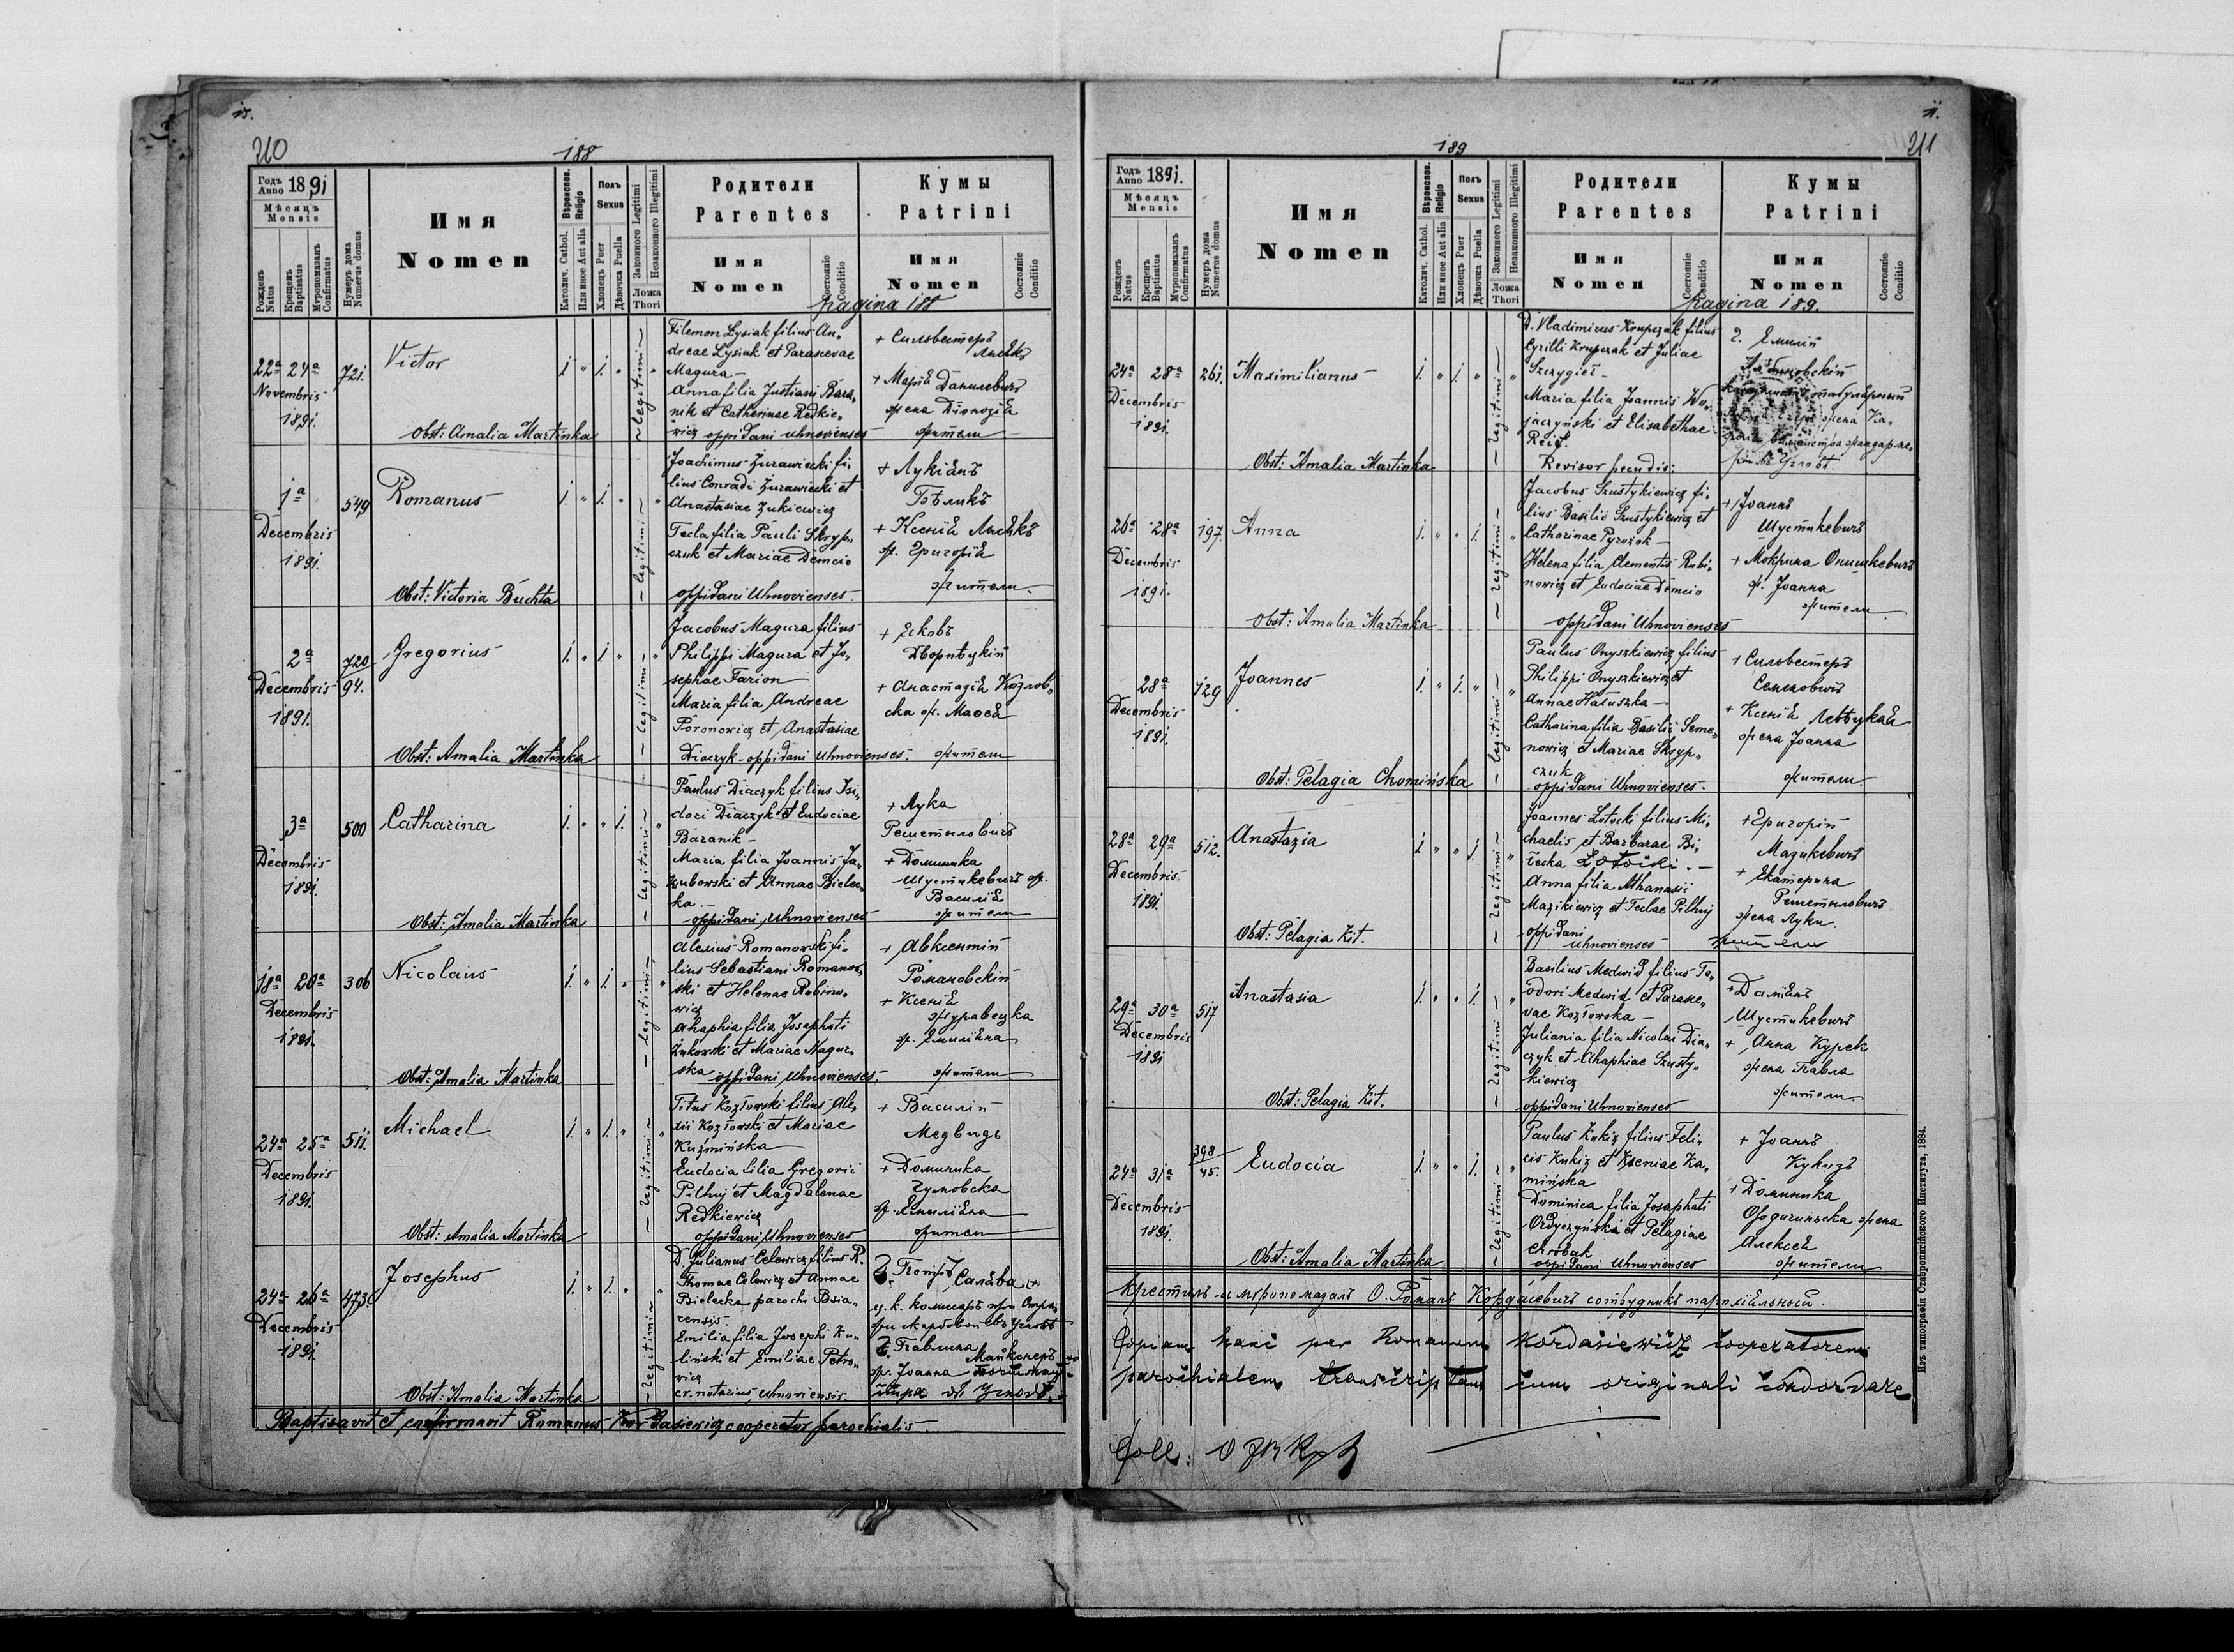 210
188
Годъ Anno 1891
Мѣсяцъ Mensis
Рожденъ Natus
Крещенъ Baptisatus
Мѵропомазанъ Confirmatus
Нумеръ дома Numerus domus
Имя
Nomen
Католич. Cathol.
Или иное Aut alia
Полъ Sexus
Хлопець Puer
Дѣвочка Puella
Законного Legitimi
Незаконного Illegitimi
Ложа Thori
Родители
Parentes
Имя
Nomen
Состояніе Conditio
Кумы
Patrini
Имя
Nomen
Состояніе Conditio
pagina 188
22ª 24ª
Novembris
1891.
721.
Victor
1 " 1. "
legitimi
Obst: Amalia Martinka
Filemon Lysiak filius An,
dreae Lysiak et Parascevae
Magura
Anna filia Justiani Bara,
nik et Catherinae Redkie,
wicz oppidani uhnovienses
+ Сильвестеръ
+ Марія Данилевичъ
жена Діонозія
жители
1ª
Decembris
1891.
549
Romanus
legitimi
Obst: Victoria Buchta
Joachimus Zurawiecki fi,
lius Conradi Zurawiecki et
Anastasiae Zukiewicz
Tecla filia Pauli Skryp,
czuk et Mariae Demcio
oppidani Uhnovienses.
+ Лукіянъ
Бѣликъ
+ Ксенія
ж. Григорія
жители.
2ª
Decembris
1891.
720
94.
Gregorius
legitimi
Obst: Amalia Martinka
Jacobus Magura filius
Philippi Magura et Jo,
sephae Farion
Maria filia Andreae
Poronowicz et Anastasiae
Diaczyk - oppidani Uhnovienses.
+ Яковъ
+ Анастазія Козлов,
ска ж.
жители
3ª
Decembris
1891.
500
Catharina
legitimi
Obst: Amalia Martinka
Paulus Diaczyk filius Isi,
dori Diaczyk et Eudociae
Baranik -
Maria filia Joannis Ja,
kubowski et Annae Bielec,
ka. -
oppidani Uhnovienses
+ Лука
Решетиловичъ
+ Доминика
Шустикевичъ ж.
Василія
жители
18ª 20ª
Decembris
1891.
306
Nicolaus
legitimi
Obst: Amalia Martinka
Alexius Romanowski fi,
lius Sebastiani Romanow,
ski et Helenae Rubino,
wicz
Ahaphia filia Josaphati
Zukowski et Mariae Magur,
ska oppidani Uhnovienses.
+ Авксентій
Романовскій
+ Ксенія
Журавецка
ж. Емиліяна
жители
24ª 25ª
Decembris
1891.
511.
Michael
legitimi
Obst: Amalia Martinka
Titus Kozłowski filius Ale,
xii Kozłowski et Mariae
Kuźmińska
Eudocia filia Gregorii
Pilhuj et Magdalenae
Redkiewicz
oppidani Uhnovienses
+ Василій
Медвидь
+ Доминика
ж. Емиліяна
24ª 26ª
Decembris
1891.
473.
Josephus
legitimi
Obst: Amalia Martinka
D. Julianus Celewicz filius R.
Thomae Celewicz et Annae
Bielecka parochi Bsia,
rensis
Emilia filia Josephi Ku,
liński et Emiliae Petro,
wicz
cr. notarius Uhnoviensis.
Петръ
Павлина
ж. Іоанна
Baptisavit et confirmavit Romanus Kordasiewicz cooperator parochialis.
211
189
Годъ Anno 1891.
Мѣсяцъ Mensis
Рожденъ Natus
Крещенъ Baptisatus
Мѵропомазанъ Confirmatus
Нумеръ дома Numerus domus
Имя
Nomen
Вѣроиспов. Religio
Католич. Cathol.
Или иное Aut alia
Полъ Sexus
Хлопець Puer
Дѣвочка Puella
Законного Legitimi
Незаконного Illegitimi
Ложа Thori
Родители
Parentes
Имя
Nomen
Состояніе Conditio
Кумы
Patrini
Имя
Nomen
Состояніе Conditio
pagina 189.
24ª 28ª
Decembris
1891.
261.
Maximilianus
legitimi
Obst: Amalia Martinka
D. Vladimirus Krupczak filius
Cyrilli Krupczak et Juliae
Szczygieł -
Maria filia Joannis Wo,
jaczyński et Elisabethae
Revisor pecudis.
Емилій
26ª 28ª
Decembris
1891.
197.
Anna
legitimi
Obst: Amalia Martinka
Jacobus Szustykiewicz fi,
lius Basilii Szustykiewicz et
Catharinae Pyrożok -
Helena filia Clementis Rubi,
nowicz et Eudociae Demcio
oppidani Uhnovienses
+ Іоаннъ
Шустикевичъ
+ Мокрина Онишкевичъ
ж. Іоанна
жители
28ª
Decembris
1891.
129
Joannes
legitimi
Obst: Pelagia Chomińska
Paulus Onyszkiewicz filius
Philippi Onyszkiewicz et
Annae Hałuszka -
Catharina filia Basilii Seme,
nowicz et Mariae Skryp,
czuk
oppidani Uhnovienses.
+ Сильвестеръ
Семеновичъ
+ Ксенія
жена Іоанна
жители.
28ª 29ª
Decembris
1891.
512.
Anastazia
legitimi
Obst: Pelagia Kit.
Joannes Łotocki filius Mi,
chaelis et Barbarae Bi,
Łotocki. -
Anna filia Athanasii
Mazikiewicz et Teclae Pilhuj
oppidani
uhnovienses
+ Григорій
Мазикевичъ
+ Екатерина
Решетиловичъ
жена Луки.
жители
29ª 30ª
Decembris
1891
517
Anastasia
legitimi
Obst: Pelagia Kit.
Basilius Medwid filius To,
odori Medwid et Parasce,
vae Kozłowska -
Juliania filia Nicolai Dia,
czyk et Ahaphiae Szusty,
kiewicz
oppidani Uhnovienses
+ Даміянъ
Шустикевичъ
+ Анна Курек
жена Павла
жители.
24ª 31ª
Decembris
1891.
398
45.
Eudocia
legitimi
Obst: Amalia Martinka
Paulus Kukiz filius Feli,
cis Kukiz et Xseniae Ka,
mińska
Dominica filia Josaphati
Ordyczyński et Pelagiae
Chrobak
oppidani Uhnovienses
+ Іоаннъ
Кукизъ
+ Доминика
Ордичиньска жена
Алексея
жители
Крестилъ и мѵропомазалъ О. Романъ Кордасевичъ сотрудникъ парохіяльный.
Copiam hanc per Romanum Kordasiewicz cooperatorem
parochialem transcriptam cum originali concordare
Coll:
Изъ типографіи Ставропигійского Института, 1884.